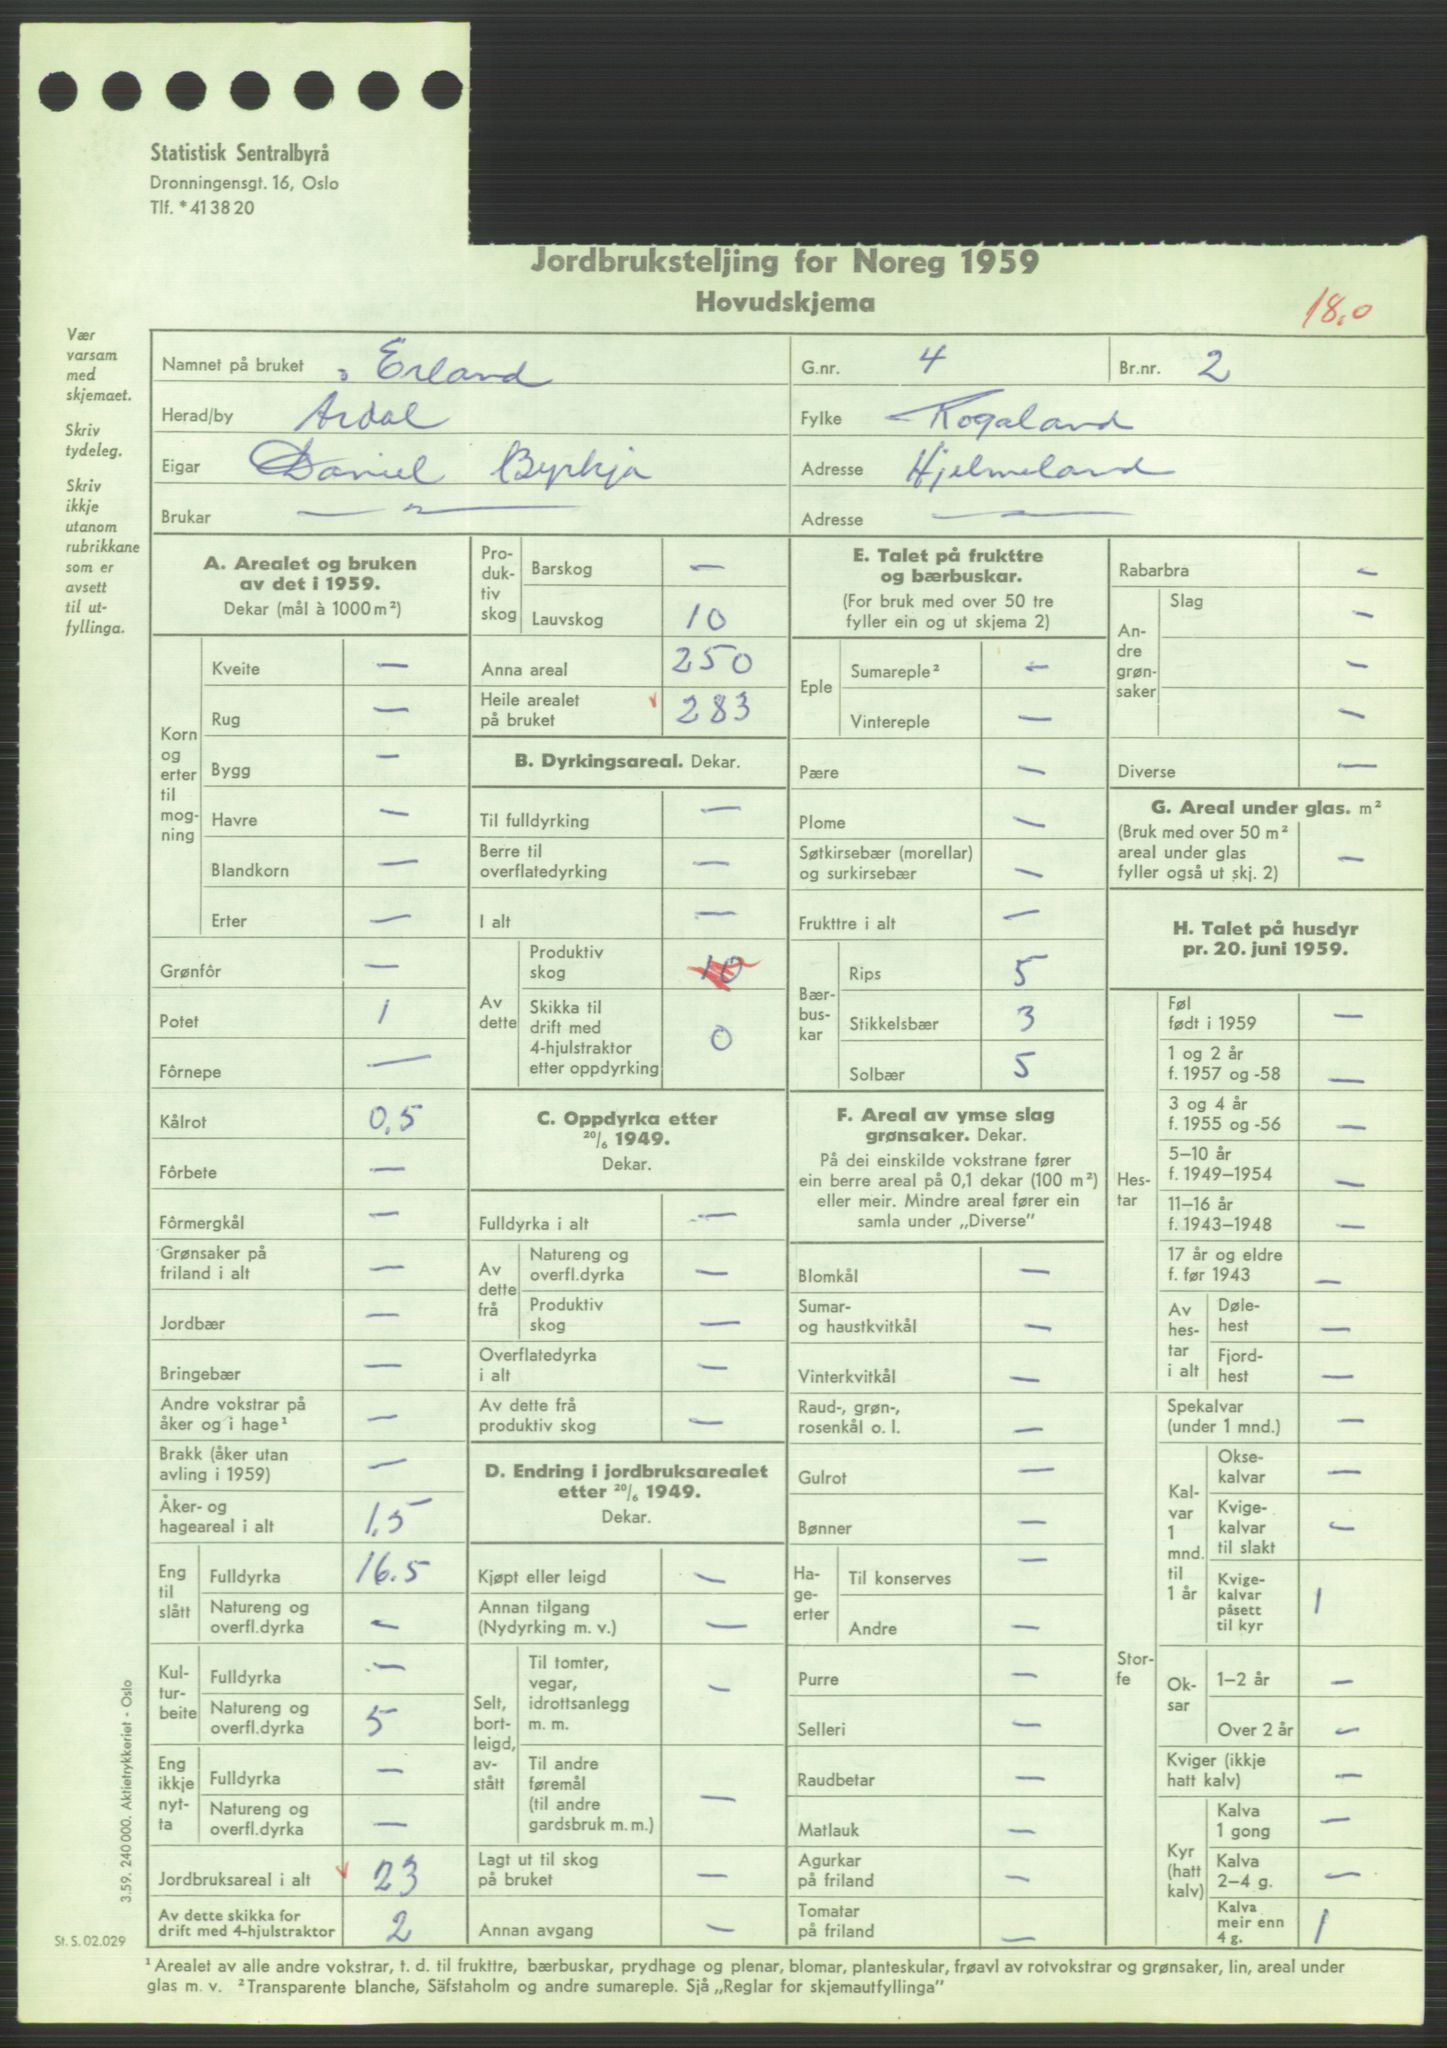 Statistisk Sentralbyrå
Dronningensgt. 16, Oslo
Tlf. *41 38 20
Jordbruksteljing for Noreg 1959
Hovudskjema
18,0
Vær
varsam
med
skjemaet.
Skriv
tydeleg.
Skriv
ikkje
utanom
rubrikkane
som er
avsett
til ut-
fyllinga.
Namnet på bruket Erland G.nr. 4 Br.nr. 2
Herad/by Årdal Fylke Rogaland
Eigar Daniel Byrkja Adresse Hjelmeland
Brukar — " — Adresse — " —
A. Arealet og bruken
av det i 1959.
Dekar (mål à 1000 m²)
Korn
og
erter
til
mog-
ning
Kveite —
Rug —
Bygg —
Havre —
Blandkorn —
Erter —
Grønfôr —
Potet 1
Fôrnepe —
Kålrot 0,5
Fôrbete —
Fôrmergkål —
Grønsaker på
friland i alt —
Jordbær —
Bringebær —
Andre vokstrar på
åker og i hage¹ —
Brakk (åker utan
avling i 1959) —
Åker- og
hageareal i alt 1,5
Eng
til
slått
Fulldyrka 16.5
Natureng og
overfl.dyrka —
Kul-
tur-
beite
Fulldyrka —
Natureng og
overfl.dyrka 5
Eng
ikkje
nyt-
ta
Fulldyrka —
Natureng og
overfl.dyrka —
Jordbruksareal i alt 23
Av dette skikka for
drift med 4-hjulstraktor 2
Pro-
duk-
tiv
skog
Barskog —
Lauvskog 10
Anna areal 250
Heile arealet
på bruket 283
B. Dyrkingsareal. Dekar.
Til fulldyrking —
Berre til
overflatedyrking —
I alt —
Av
dette
Produktiv
skog 10
Skikka til
drift med
4-hjulstraktor
etter oppdyrking 0
C. Oppdyrka etter
20/6 1949.
Dekar.
Fulldyrka i alt —
Av
dette
frå
Natureng og
overfl.dyrka —
Produktiv
skog —
Overflatedyrka
i alt —
Av dette frå
produktiv skog —
D. Endring i jordbruksarealet
etter 20/6 1949.
Dekar.
Kjøpt eller leigd —
Annan tilgang
(Nydyrking m. v.) —
Selt,
bort-
leigd,
av-
stått
Til tomter,
vegar,
idrottsanlegg
m. m. —
Til andre
føremål
(til andre
gardsbruk m. m.) —
Lagt ut til skog
på bruket —
Annan avgang —
E. Talet på frukttre
og bærbuskar.
(For bruk med over 50 tre
fyller ein og ut skjema 2)
Eple
Sumareple² —
Vintereple —
Pære —
Plome —
Søtkirsebær (morellar)
og surkirsebær —
Frukttre i alt —
Bær-
bus-
kar
Rips 5
Stikkelsbær 3
Solbær 5
F. Areal av ymse slag
grønsaker. Dekar.
På dei einskilde vokstrane fører
ein berre areal på 0,1 dekar (100 m²)
eller meir. Mindre areal fører ein
samla under „Diverse”
Blomkål —
Sumar-
og haustkvitkål —
Vinterkvitkål —
Raud-, grøn-,
rosenkål o. l. —
Gulrot —
Bønner —
Ha-
ge-
erter
Til konserves —
Andre —
Purre —
Selleri —
Raudbetar —
Matlauk —
Agurkar
på friland —
Tomatar
på friland —
Rabarbra —
An-
dre
grøn-
saker
Slag —
—
—
Diverse —
G. Areal under glas. m²
(Bruk med over 50 m²
areal under glas
fyller også ut skj. 2) —
H. Talet på husdyr
pr. 20. juni 1959.
Hes-
tar
Føl
født i 1959 —
1 og 2 år
f. 1957 og -58 —
3 og 4 år
f. 1955 og -56 —
5–10 år
f. 1949–1954 —
11–16 år
f. 1943–1948 —
17 år og eldre
f. før 1943 —
Av
hes-
tar
i alt
Døle-
hest —
Fjord-
hest —
Stor-
fe
Spekalvar
(under 1 mnd.) —
Kal-
var
1
mnd.
til
1 år
Okse-
kalvar —
Kvige-
kalvar
til slakt —
Kvige-
kalvar
påsett
til kyr 1
Ok-
sar
1–2 år —
Over 2 år —
Kviger (ikkje
hatt kalv) —
Kyr
(hatt
kalv)
Kalva
1 gong —
Kalva
2–4 g. —
Kalva
meir enn
4 g. 1
3.59. 240 000. Aktietrykkeriet - Oslo
St. S. 02.029
¹ Arealet av alle andre vokstrar, t. d. til frukttre, bærbuskar, prydhage og plenar, blomar, planteskular, frøavl av rotvokstrar og grønsaker, lin, areal under
glas m. v. ² Transparente blanche, Säfstaholm og andre sumareple. Sjå „Reglar for skjemautfyllinga”